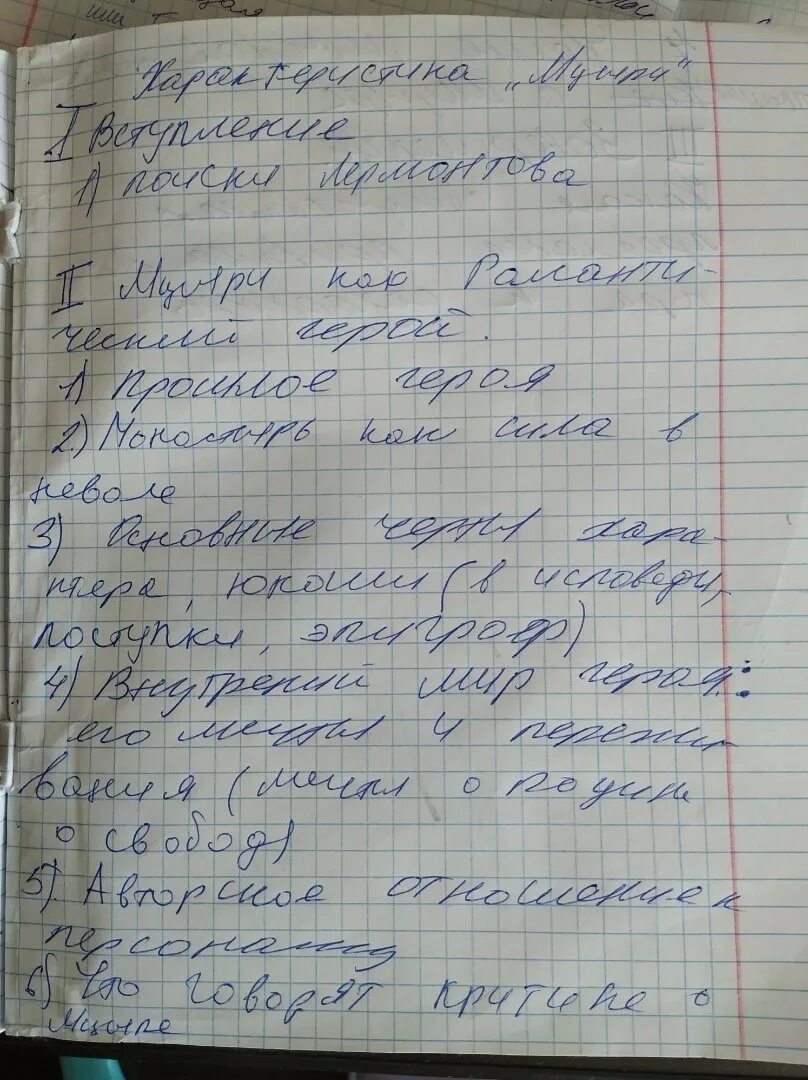 Характеристика „Мцыри"
I Вступление
1) поиски Лермонтова
II Мцыри как Романти-
ческий герой.
1) прошлое героя
2.) Монастырь как сила в
неволе
3) Основные черты хара-
ктера, юноши (в исповеди,
поступки, эпиграф)
4) Внутрений мир героя:
его мечты и пережи
вания (мечты о родине
о свобод)
5). Авторское отношение к
персонажу
6) Что говорят критике о
Мцыре